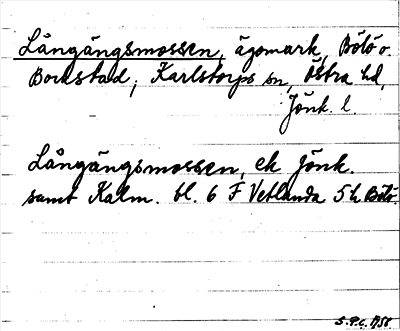 Långängsmossen, ägomark, Bötö o.
Bockstad, Karlstorps sn, Östra hd,
Jönk. l.
Långängsmossen, ek Jönk.
samt Kalm. bl. 6 F Vetlanda 5 h Bötö.
S.P.C. 1958